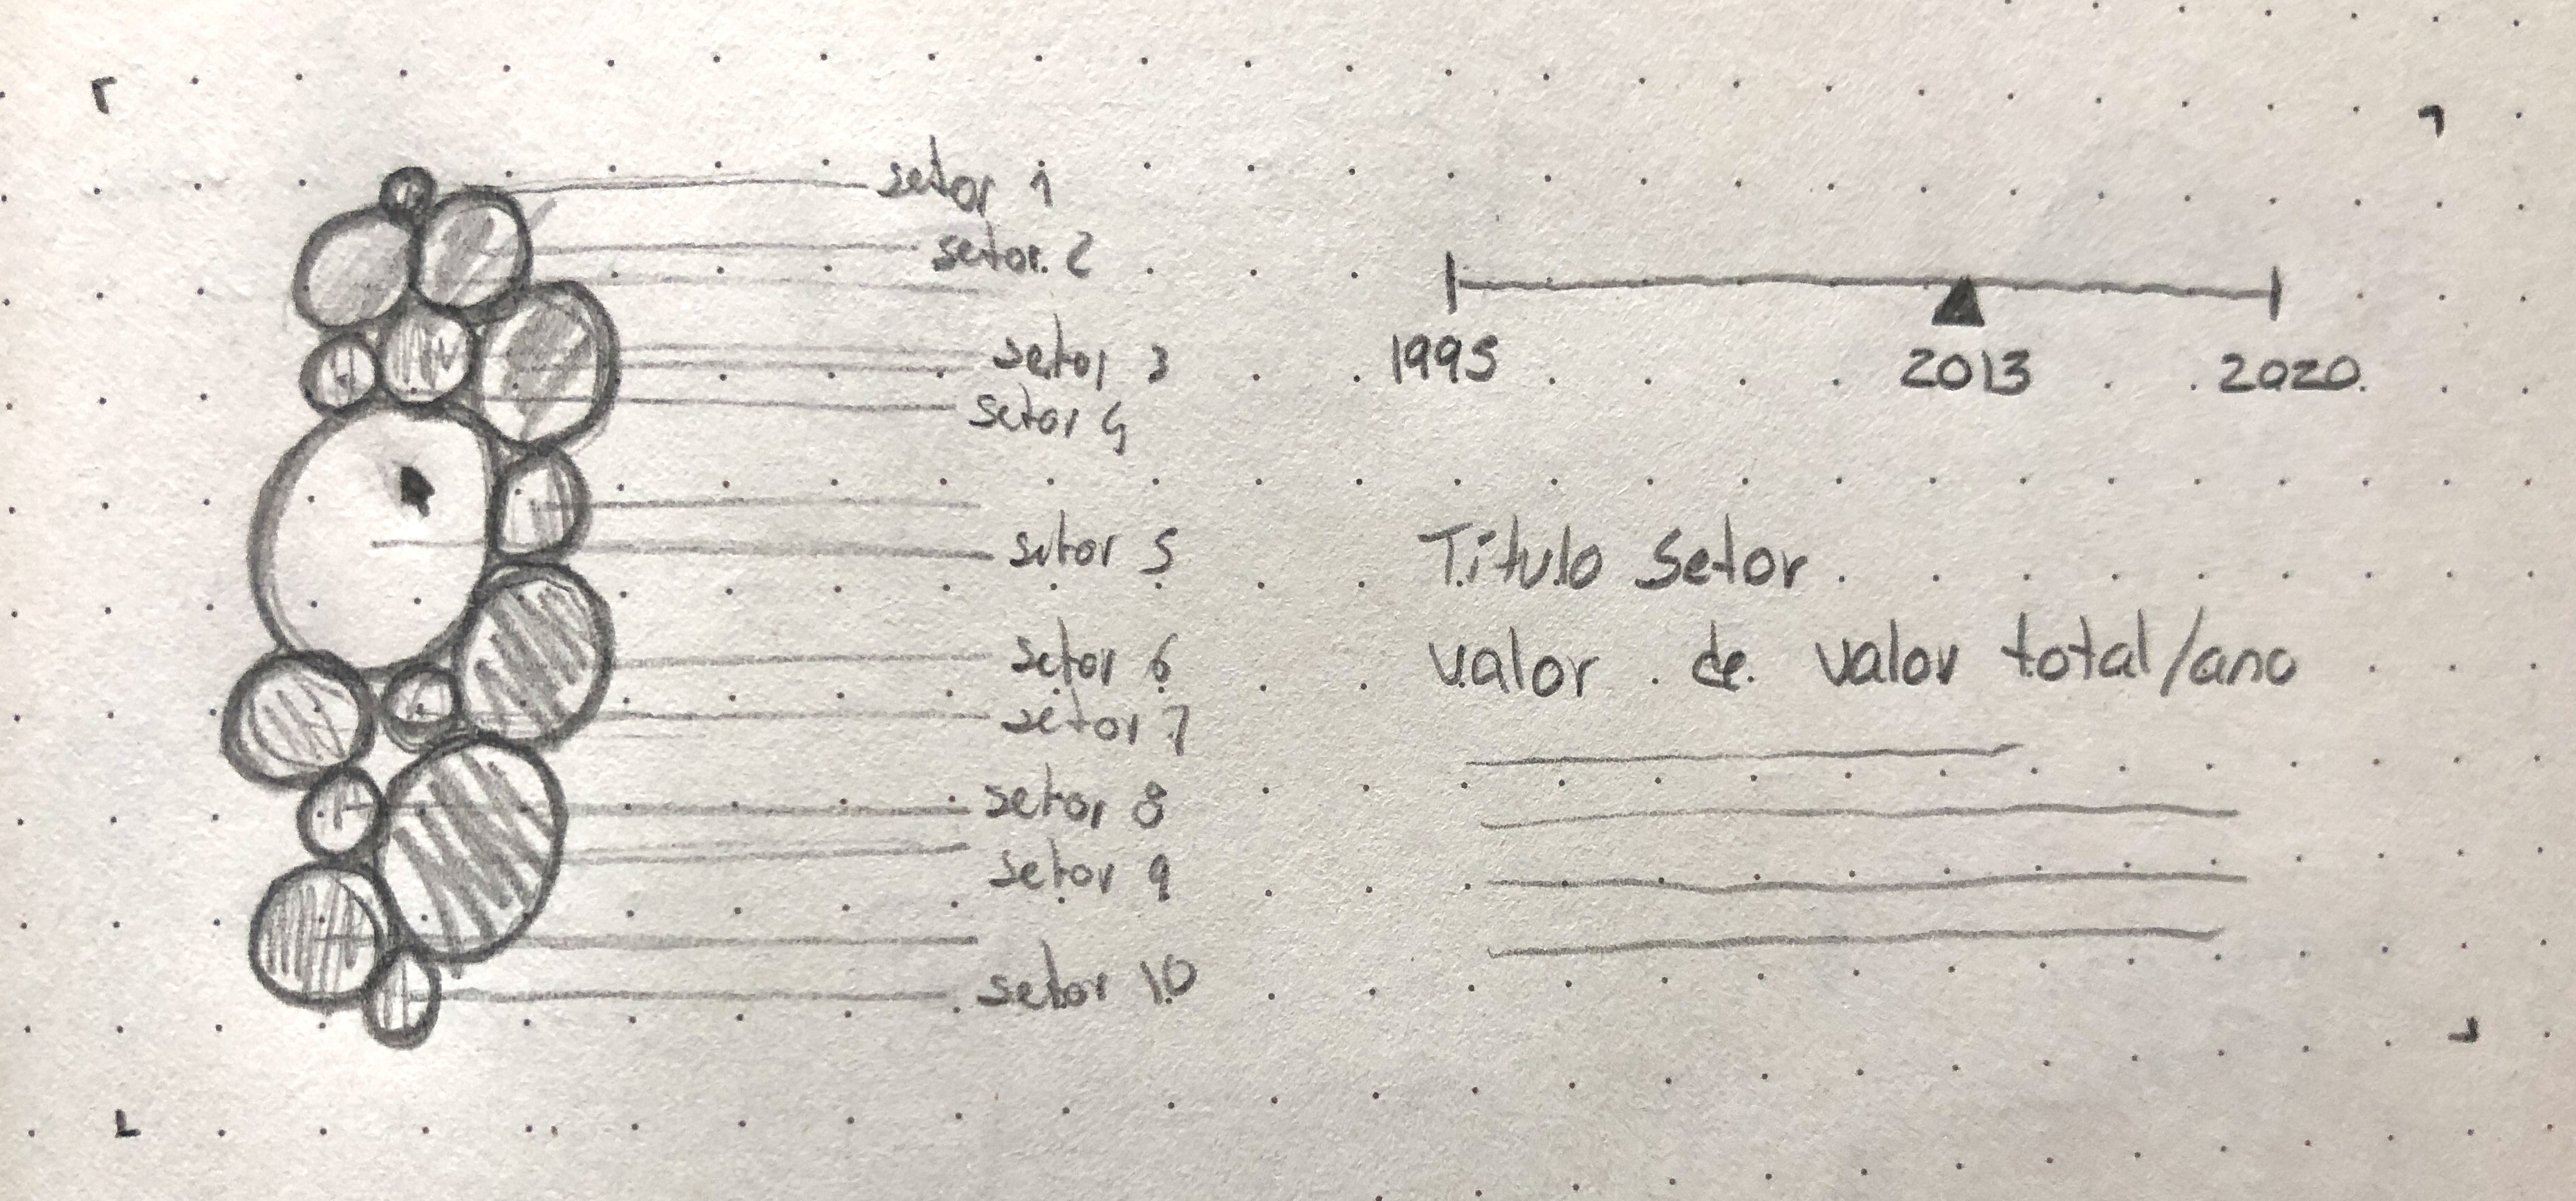 setor 1
setor 2
setor 3
setor 4
setor 5
setor 6
setor 7
setor 8
setor 9
setor 10
1995
2013
2020
Título Setor
valor de valor total/ano